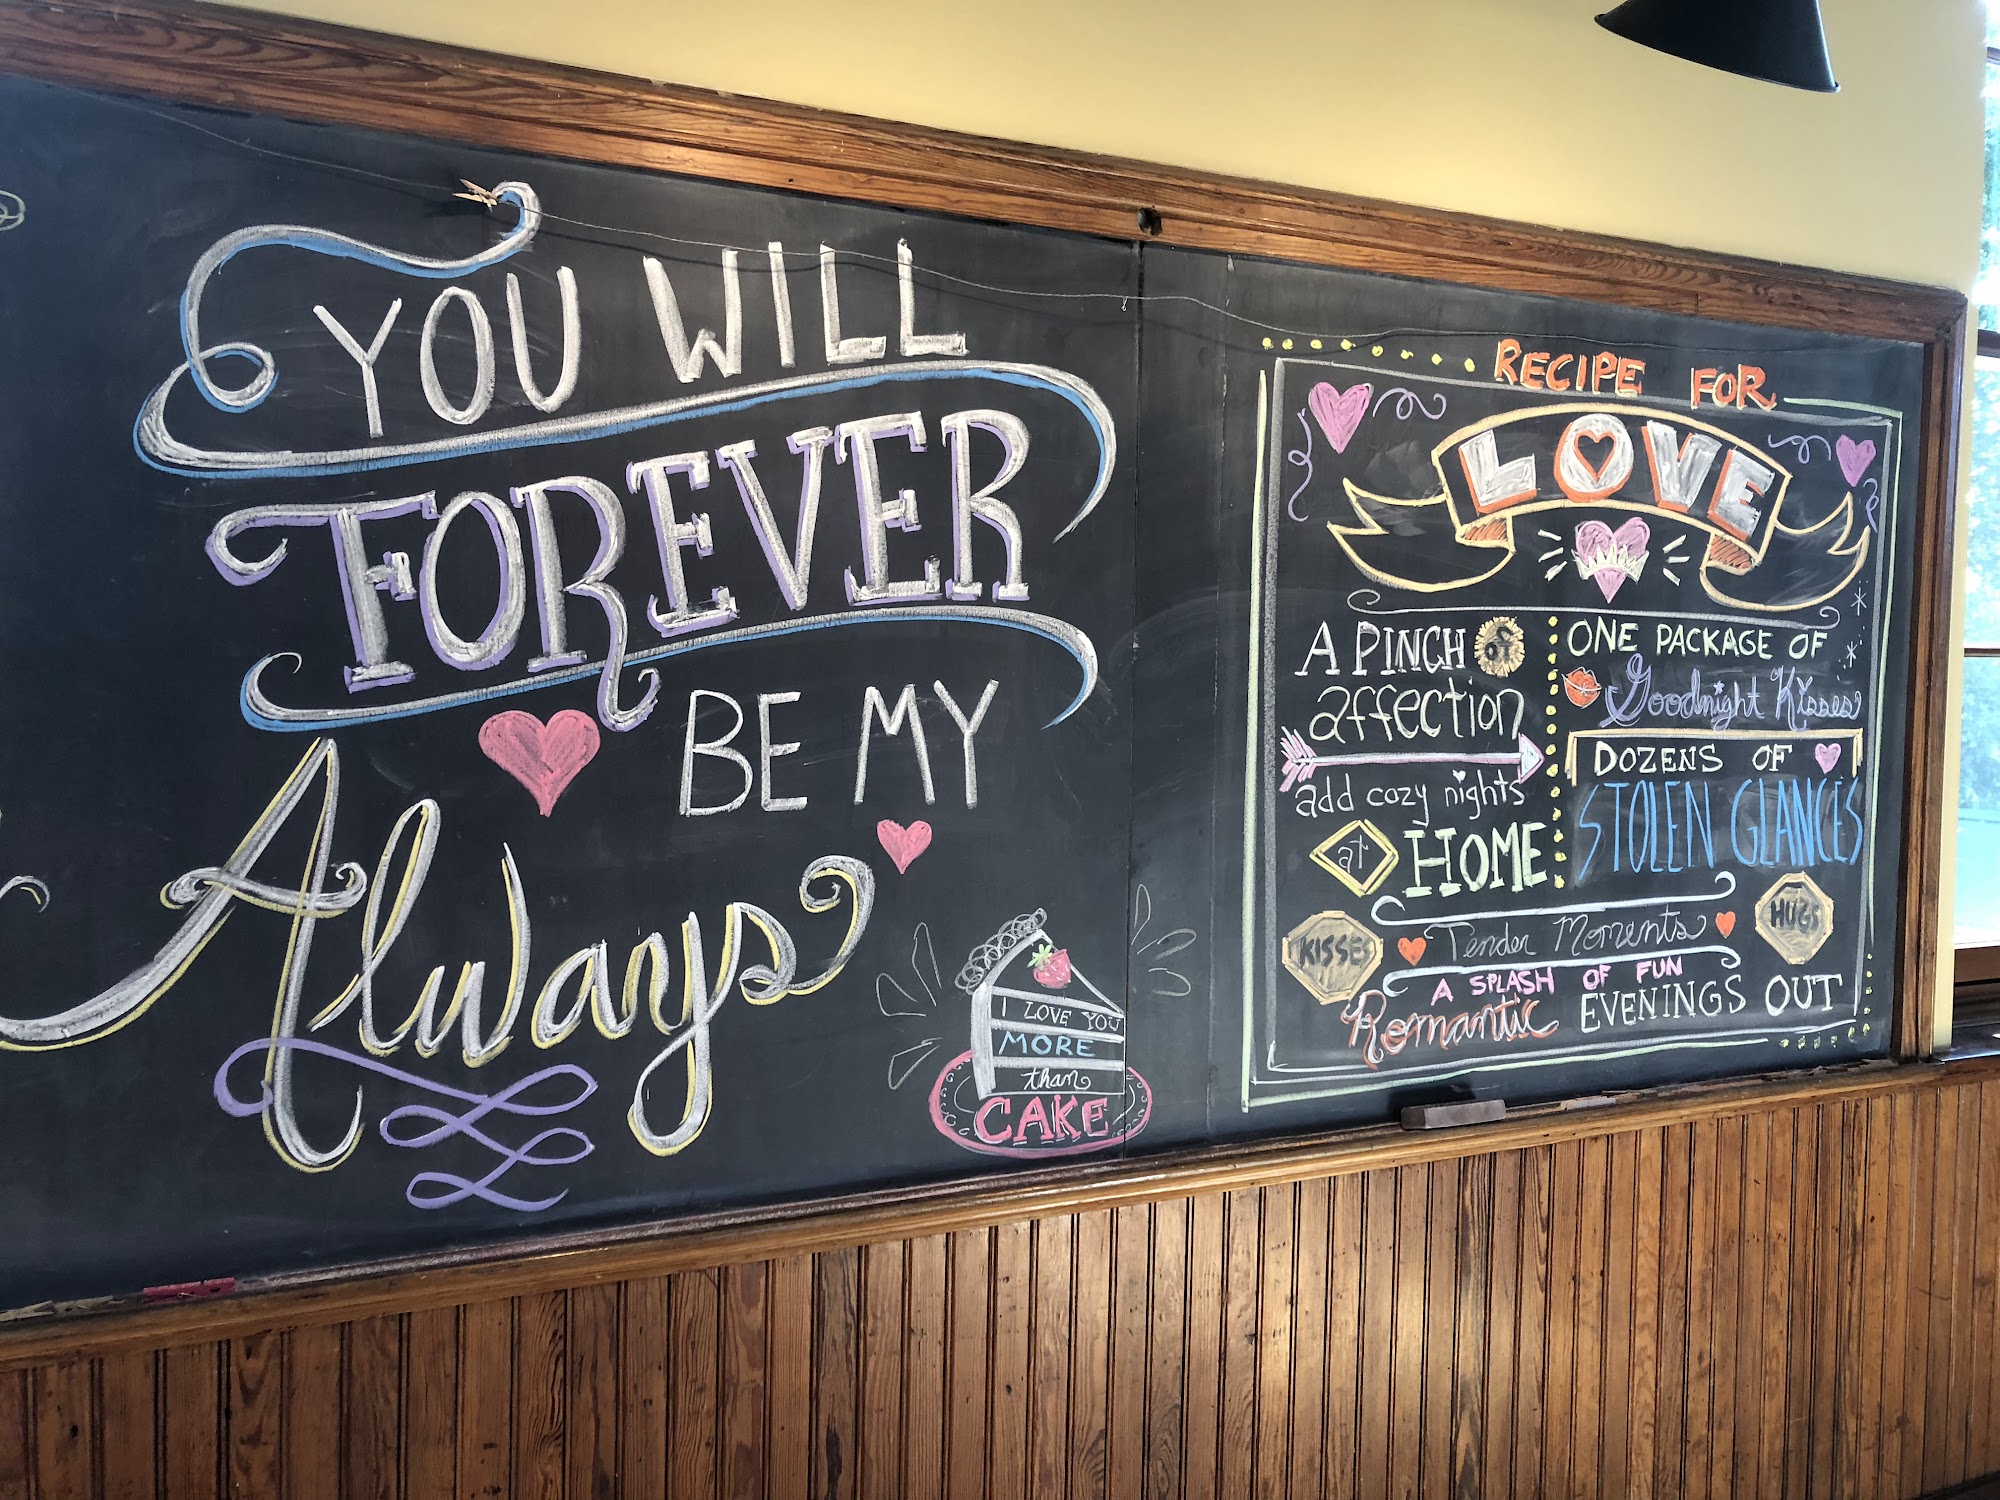 YOU WILL
FOREVER
BE MY
Always
I LOVE YOU
MORE
than
CAKE
RECIPE FOR
LOVE
A PINCH OF
affection
add cozy nights
at HOME
ONE PACKAGE OF
Goodnight Kisses
DOZENS OF
STOLEN GLANCES
KISSES
Tender Moments
HUGS
A SPLASH OF FUN
Romantic EVENINGS OUT